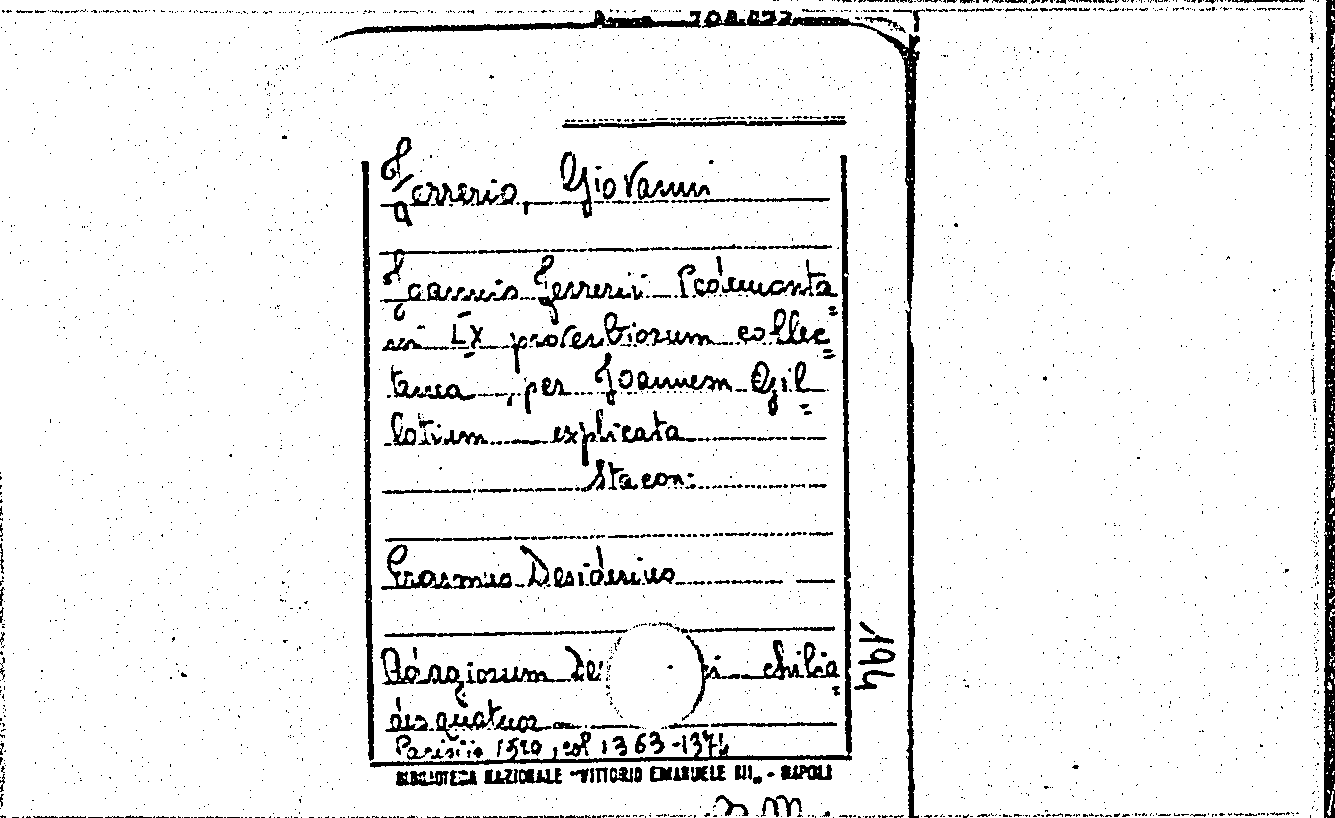 Ferrerio, Giovanni
Joannis Ferrerii Pedemonta=
ni LX proverbiorum collec=
tanea, per Joannem Gil=
lotium explicata
sta con:
Erasmus Desiderius
Adagiorum chilia=
des quatuor
Parisiis 1520, col 1363-1374
BIBLIOTECA NAZIONALE "VITTORIO EMANUELE III" - NAPOLI
194